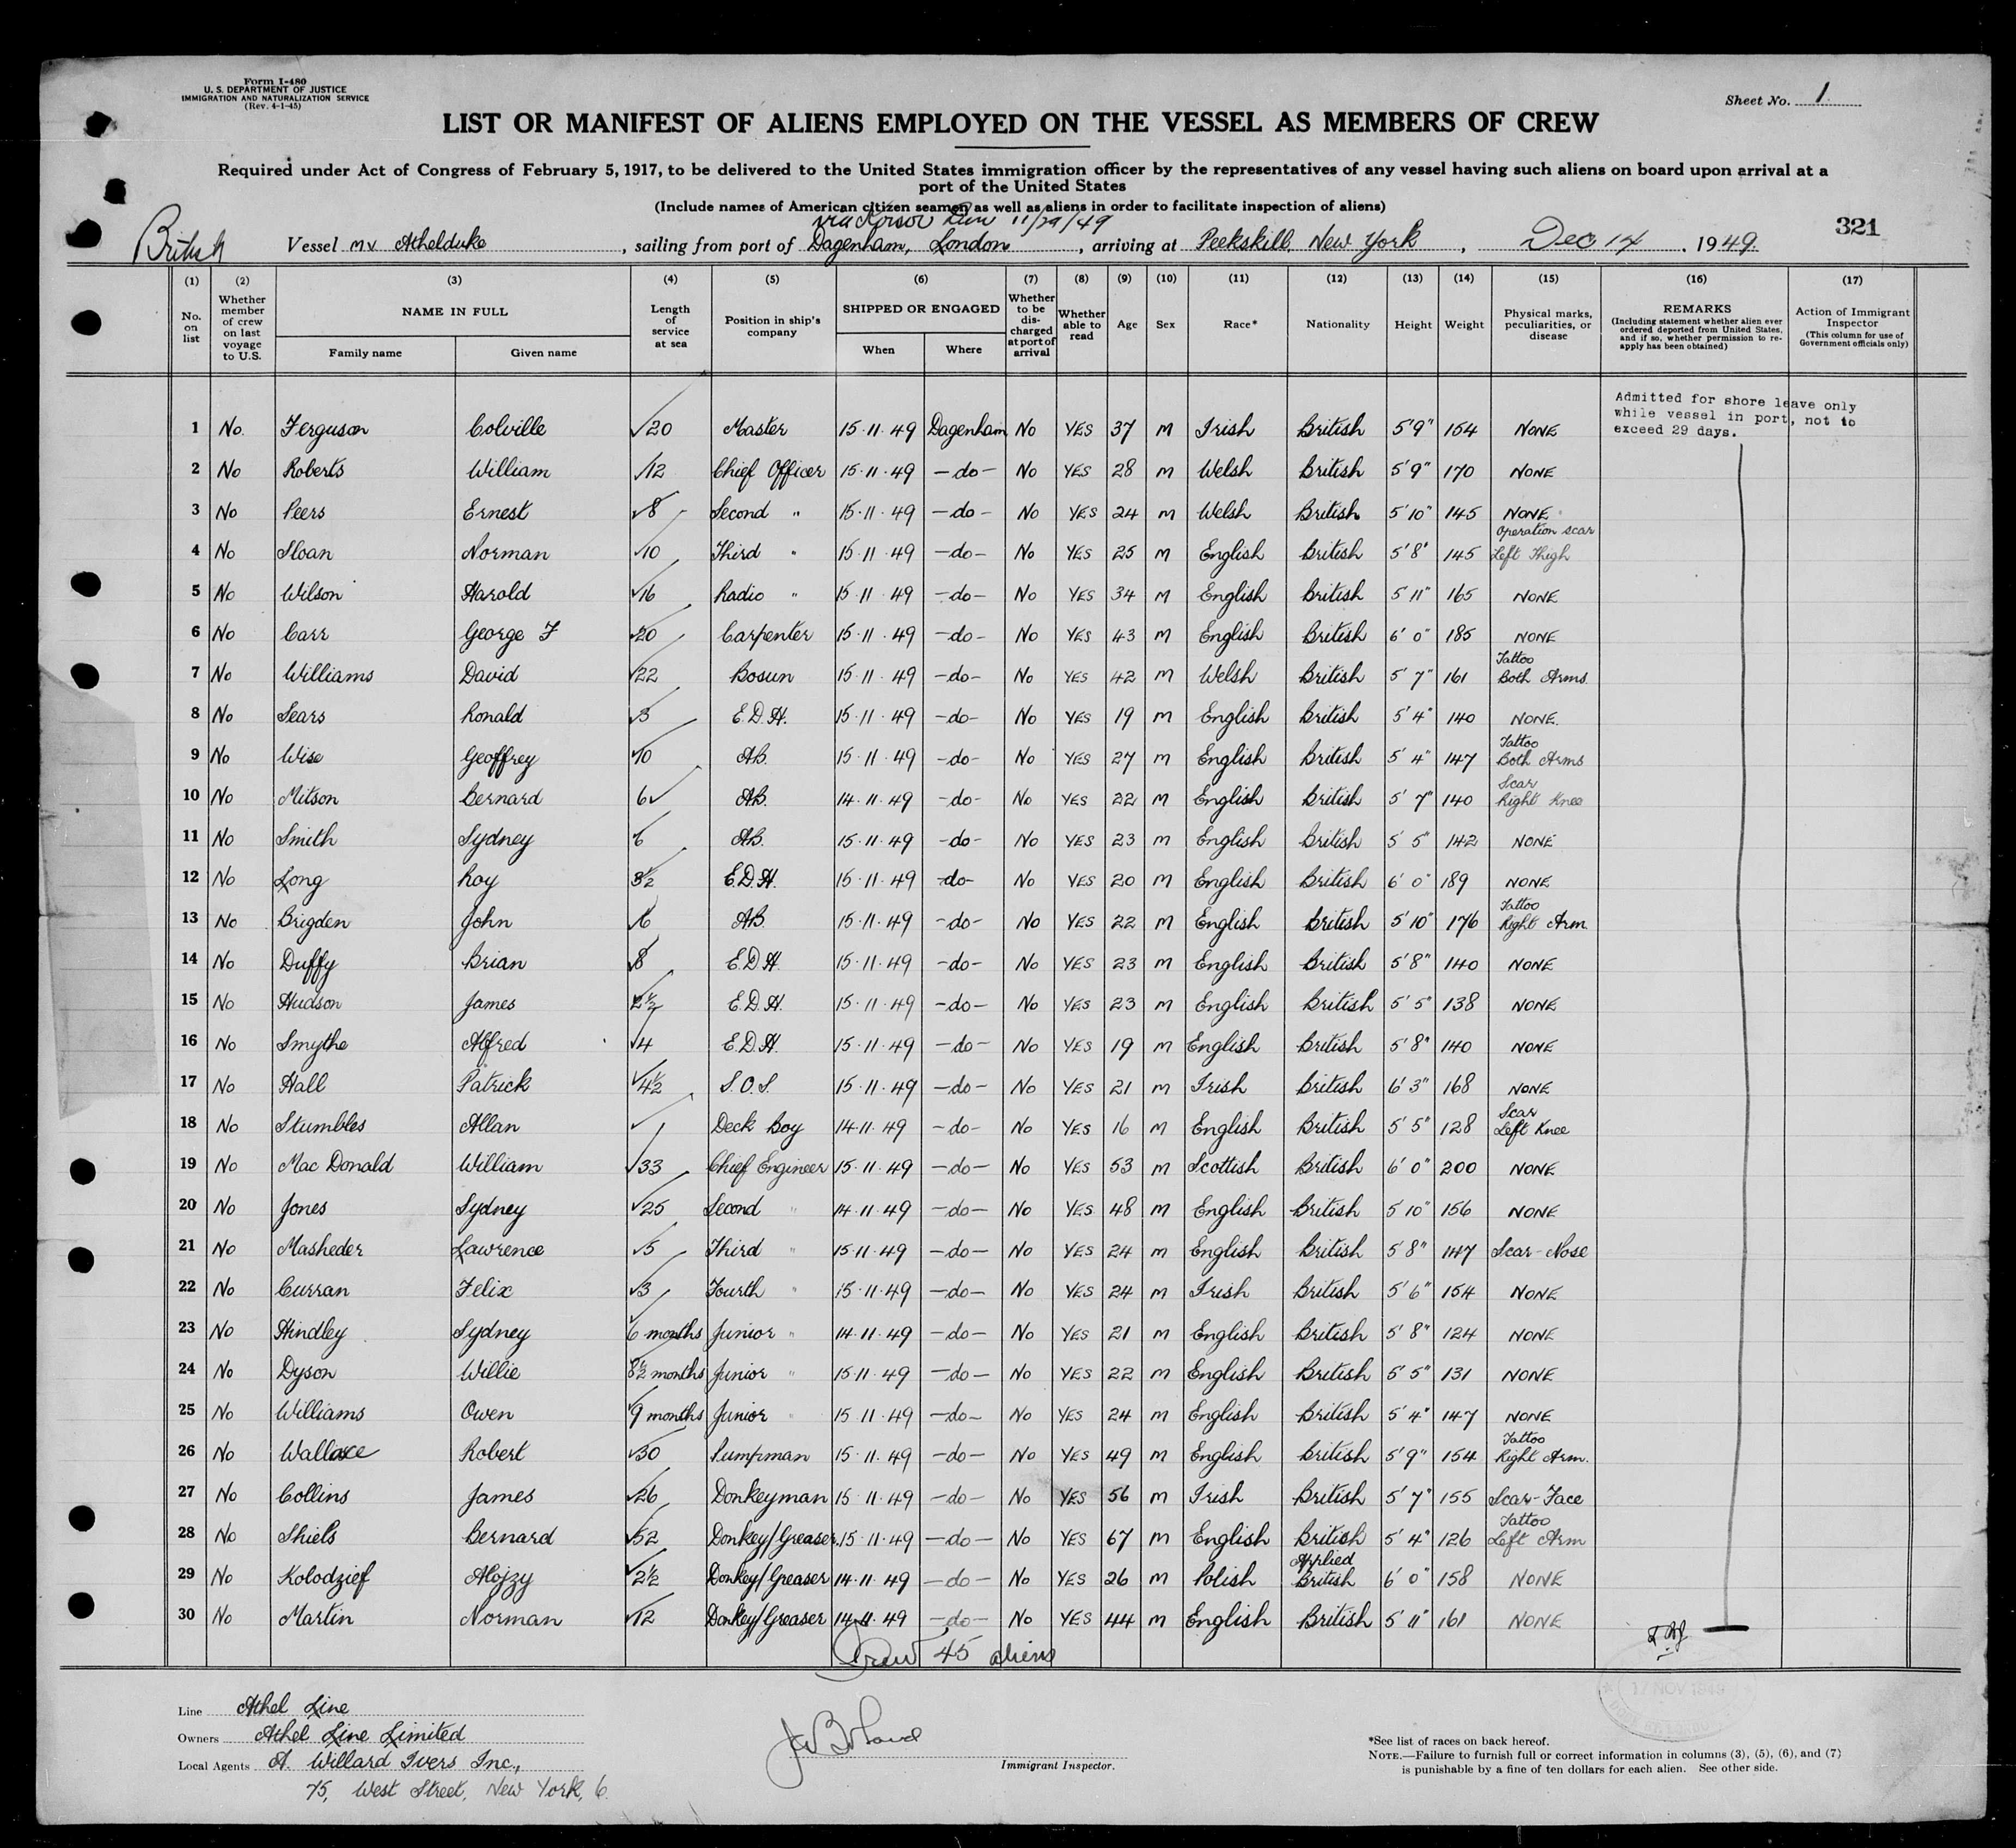 Form I-480
U. S. DEPARTMENT OF JUSTICE
IMMIGRATION AND NATURALIZATION SERVICE
(Rev. 4-1-45)
Sheet No. 1
LIST OR MANIFEST OF ALIENS EMPLOYED ON THE VESSEL AS MEMBERS OF CREW
Required under Act of Congress of February 5, 1917, to be delivered to the United States immigration officer by the representatives of any vessel having such aliens on board upon arrival at a
port of the United States
(Include names of American citizen seamen as well as aliens in order to facilitate inspection of aliens)
via 11/29/49
321
British Vessel MV Athelduke, sailing from port of Dagenham, London, arriving at Peekskill, New York, Dec 14, 1949
(1) (2) (3) (4) (5) (6) (7) (8) (9) (10) (11) (12) (13) (14) (15) (16) (17)
No. on list
Whether member of crew on last voyage to U.S.
NAME IN FULL
Family name
Given name
Length of service at sea
Position in ship's company
SHIPPED OR ENGAGED
When
Where
Whether to be discharged at port of arrival
Whether able to read
Age
Sex
Race*
Nationality
Height
Weight
Physical marks, peculiarities, or disease
REMARKS
(Including statement whether alien ever ordered deported from United States, and if so, whether permission to re-apply has been obtained)
Action of Immigrant Inspector
(This column for use of Government officials only)
Admitted for shore leave only
while vessel in port, not to
exceed 29 days.
1 No. Ferguson Colville 20 Master 15.11.49 Dagenham No YES 37 M Irish British 5'9" 154 NONE
2 No Roberts William 12 Chief Officer 15.11.49 -do- No YES 28 M Welsh British 5'9" 170 NONE
3 No Peers Ernest 8 Second " 15.11.49 -do- No YES 24 M Welsh British 5'10" 145 NONE
4 No Sloan Norman 10 Third " 15.11.49 -do- No YES 25 M English British 5'8" 145 Operation scar Left Thigh
5 No Wilson Harold 16 Radio " 15.11.49 -do- No YES 34 M English British 5'11" 165 NONE
6 No Carr George F 20 Carpenter 15.11.49 -do- No YES 43 M English British 6'0" 185 NONE
7 No Williams David 22 Bosun 15.11.49 -do- No YES 42 M Welsh British 5'7" 161 Tattoo Both Arms
8 No Sears Ronald 3 E.D.H. 15.11.49 -do- No YES 19 M English British 5'4" 140 NONE.
9 No Wise Geoffrey 10 AB. 15.11.49 -do- No YES 27 M English British 5'4" 147 Tattoo Both Arms
10 No Mitson Bernard 6 AB. 14.11.49 -do- No YES 22 M English British 5'7" 140 Scar Right Knee
11 No Smith Sydney 6 AB. 15.11.49 -do- No YES 23 M English British 5'5" 142 NONE
12 No Long Roy 3½ E.D.H. 15.11.49 -do- No YES 20 M English British 6'0" 189 NONE
13 No Brigden John 6 AB. 15.11.49 -do- No YES 22 M English British 5'10" 176 Tattoo Right Arm
14 No Duffy Brian 8 E.D.H. 15.11.49 -do- No YES 23 M English British 5'8" 140 NONE
15 No Hudson James 2½ E.D.H. 15.11.49 -do- No YES 23 M English British 5'5" 138 NONE
16 No Smythe Alfred 4 E.D.H. 15.11.49 -do- No YES 19 M English British 5'8" 140 NONE
17 No Hall Patrick 4½ S.O.S. 15.11.49 -do- No YES 21 M Irish British 6'3" 168 NONE
18 No Stumbles Allan Deck Boy 14.11.49 -do- No YES 16 M English British 5'5" 128 Scar Left Knee
19 No Mac Donald William 33 Chief Engineer 15.11.49 -do- No YES 53 M Scottish British 6'0" 200 NONE
20 No Jones Sydney 25 Second " 14.11.49 -do- No YES 48 M English British 5'10" 156 NONE
21 No Masheder Lawrence 5 Third " 15.11.49 -do- No YES 24 M English British 5'8" 147 Scar-Nose
22 No Curran Felix 3 Fourth " 15.11.49 -do- No YES 24 M Irish British 5'6" 154 NONE
23 No Hindley Sydney 6 months Junior " 14.11.49 -do- No YES 21 M English British 5'8" 124 NONE
24 No Dyson Willie 8½ months Junior " 15.11.49 -do- No YES 22 M English British 5'5" 131 NONE
25 No Williams Owen 9 months Junior " 15.11.49 -do- No YES 24 M English British 5'4" 147 NONE
26 No Wallace Robert 30 Pumpman 15.11.49 -do- No YES 49 M English British 5'9" 154 Tattoo Right Arm.
27 No Collins James 26 Donkeyman 15.11.49 -do- No YES 56 M Irish British 5'7" 155 Scar-Face
28 No Shiels Bernard 52 Donkey/Greaser 15.11.49 -do- No YES 67 M English British 5'4" 126 Tattoo Left Arm
29 No Kolodzief Alojzy 2½ Donkey/Greaser 14.11.49 -do- No YES 26 M Polish Applied British 6'0" 158 NONE
30 No Martin Norman 12 Donkey/Greaser 14.11.49 -do- No YES 44 M English British 5'11" 161 NONE
45 aliens
17 NOV 1949
Line Athel Line
Owners Athel Line Limited
Local Agents A. Willard Ivers Inc.,
75, West Street, New York, 6.
Immigrant Inspector.
*See list of races on back hereof.
NOTE.—Failure to furnish full or correct information in columns (3), (5), (6), and (7)
is punishable by a fine of ten dollars for each alien. See other side.